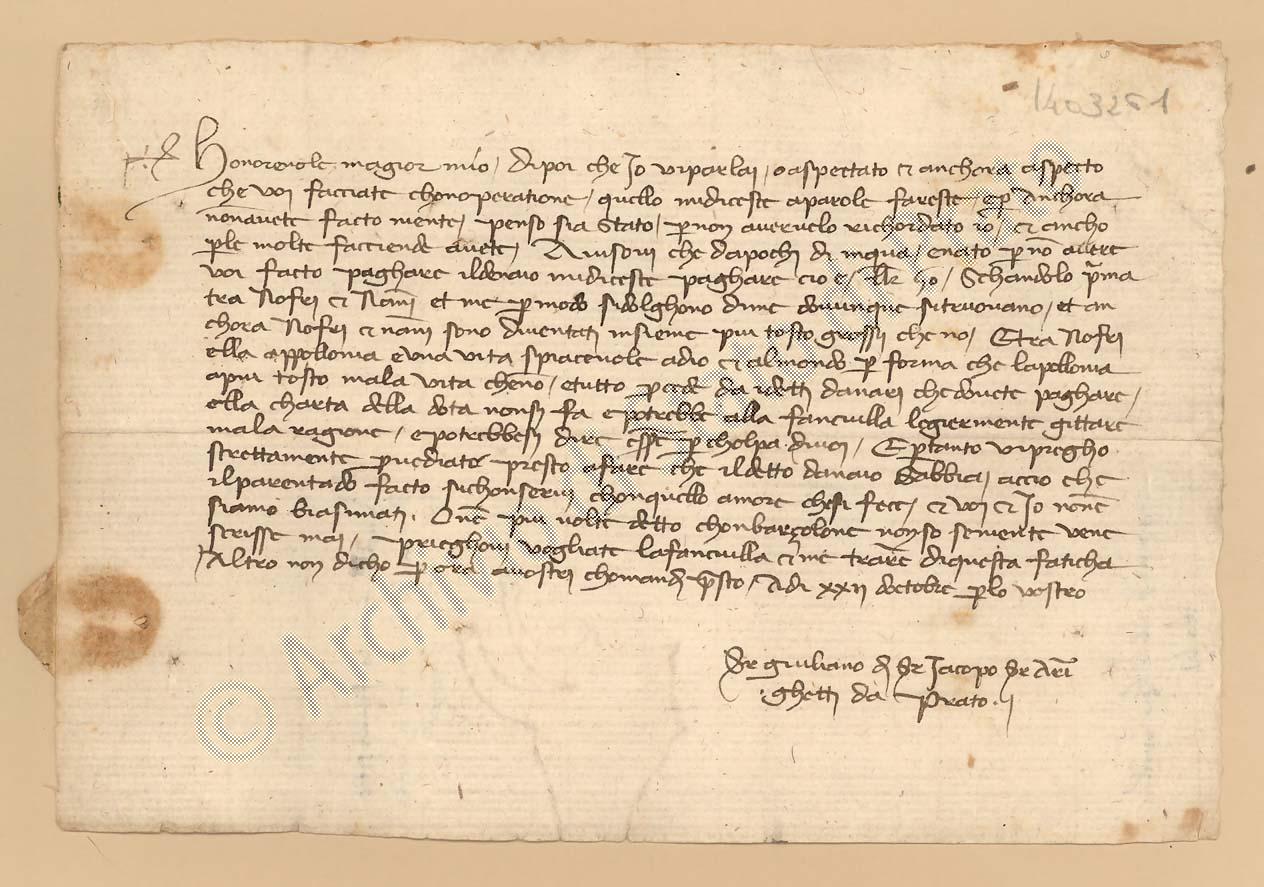 1403261
Honorevole magior mio, dipoi che Jo viparlai, o aspectato et anchora aspecto
che voi facciate chonoperatione, quello midiceste aparole fareste, e p anchora
nonavete facto niente, penso sia stato, p non avervelo richordato io, et ancho
ple molte facciende avete, Avisovi che dapochi di inqua, enato p nō avere
voi facto paghare ildenaio midiceste paghare cio e, Schandolo pma
tra Nofri et Nanī et me p modo sidolghono dime dovunque sitruovano, et an
chora Nofri et nanī sono diventati insieme piu tosto grossi che no, Etra Nofri
ella appollonia e una vita spiacevole adio et almondo p forma che lapollonia
apiu tosto mala vita chenō, etutto pcede da idetti danari chedovete paghare,
ella charta della dota nonsi fa e potrebbe alla fanciulla legiermente gittare
mala ragione, epotrebbesi dire eſſe p cholpa divoi, E ptanto vipregho
strettamente pvediate presto afare che ildetto danaio sabbia, accio che
ilparentado facto sichonservi chonquello amore chesi fece, et voi et Jo nonē
siamo biasimati. Onē piu volte detto chonbarzolone nonso seniente vene
scrisse mai, Prieghovi vogliate lafanciulla et me trarre diquesta faticha
Altro non dicho p ora avostri chomandi psto, Adi xxii doctobre plo vostro
Ser giuliano d Ser Jacopo Ser Arri
ghetti da Prato.
© Archivio